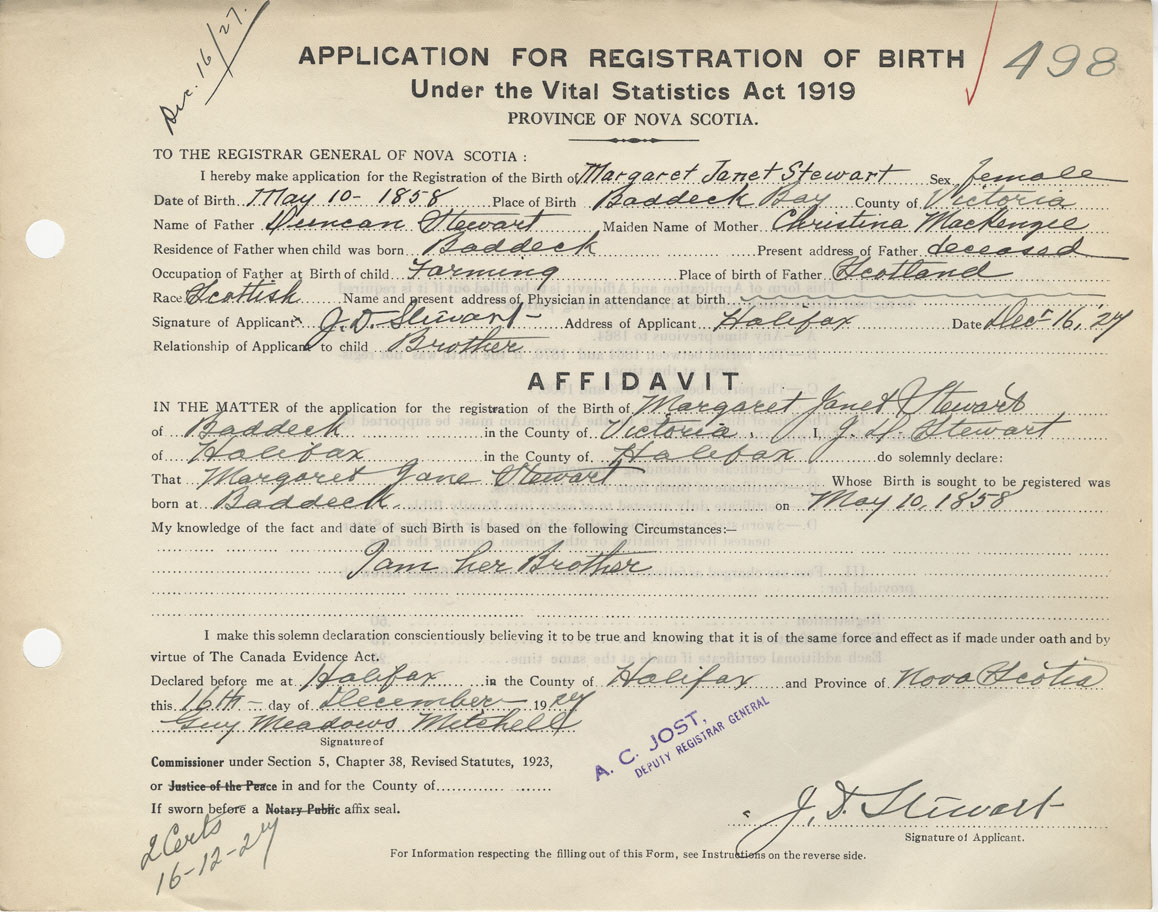 Dec. 16/27.
498
APPLICATION FOR REGISTRATION OF BIRTH
Under the Vital Statistics Act 1919
PROVINCE OF NOVA SCOTIA.
TO THE REGISTRAR GENERAL OF NOVA SCOTIA :
I hereby make application for the Registration of the Birth of Margaret Janet Stewart Sex female
Date of Birth May 10 - 1858 Place of Birth Baddeck Bay County of Victoria
Name of Father Duncan Stewart Maiden Name of Mother Christina Mackenzie
Residence of Father when child was born Baddeck Present address of Father deceased
Occupation of Father at Birth of child Farming Place of birth of Father Scotland
Race Scottish Name and present address of Physician in attendance at birth
Signature of Applicant J. D. Stewart Address of Applicant Halifax Date Decr 16, 27
Relationship of Applicant to child Brother
AFFIDAVIT
IN THE MATTER of the application for the registration of the Birth of Margaret Janet Stewart
of Baddeck in the County of Victoria. I, J. D. Stewart
of Halifax in the County of Halifax do solemnly declare:
That Margaret Jane Stewart Whose Birth is sought to be registered was
born at Baddeck. on May 10, 1858
My knowledge of the fact and date of such Birth is based on the following Circumstances:—
I am her Brother
I make this solemn declaration conscientiously believing it to be true and knowing that it is of the same force and effect as if made under oath and by
virtue of The Canada Evidence Act.
Declared before me at Halifax in the County of Halifax and Province of Nova Scotia
this 16th day of December 1927
Guy Meadows Mitchell
Signature of
A. C. JOST,
DEPUTY REGISTRAR GENERAL
Commissioner under Section 5, Chapter 38, Revised Statutes, 1923,
or Justice of the Peace in and for the County of
If sworn before a Notary Public affix seal.
J. D. Stewart
Signature of Applicant.
2 Certs
16-12-27
For Information respecting the filling out of this Form, see Instructions on the reverse side.